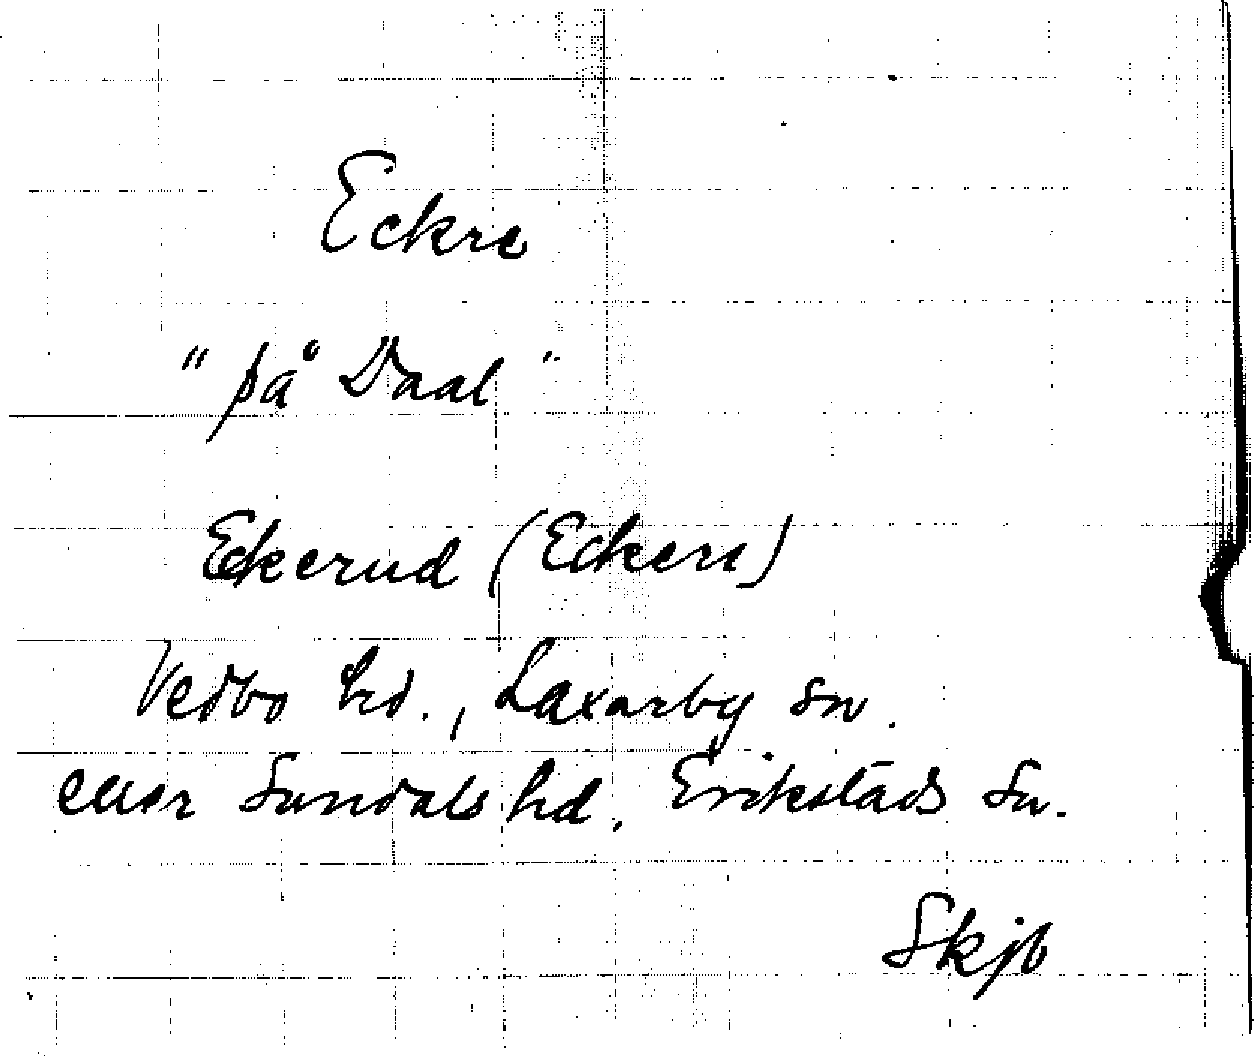 Eckre
"på Daal"
Ekerud (Eckers)
Vedbo hd., Laxarby sn.
eller Sundals hd, Erikstads sn.
Skjb